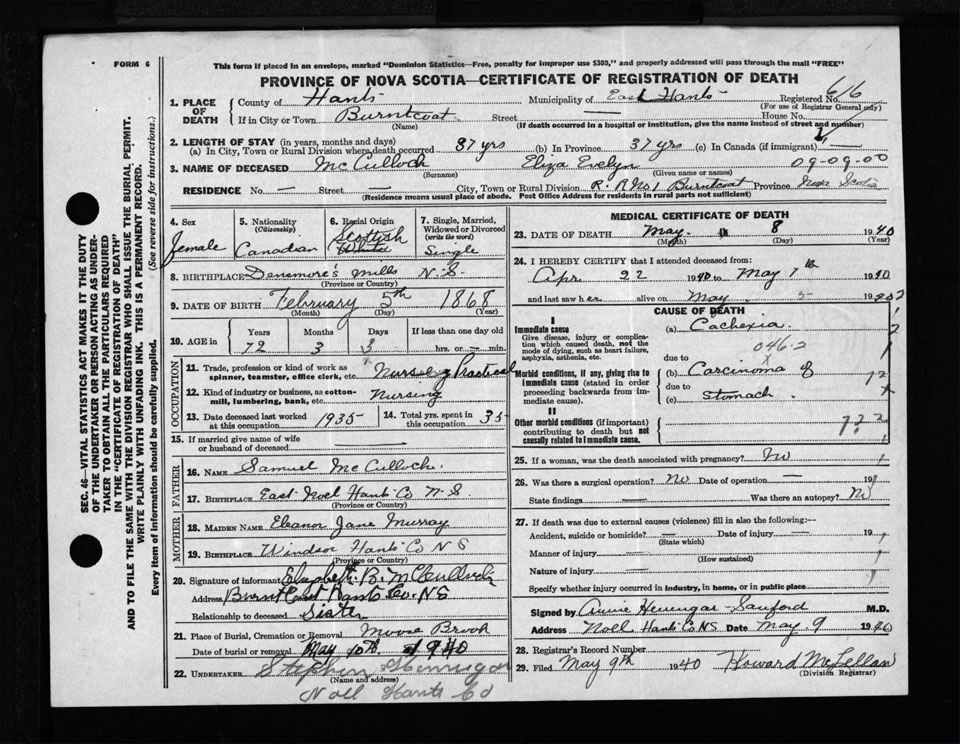 FORM 6
This form if placed in an envelope, marked "Dominion Statistics—Free, penalty for improper use $300," and properly addressed will pass through the mail "FREE"
PROVINCE OF NOVA SCOTIA—CERTIFICATE OF REGISTRATION OF DEATH
SEC. 46—VITAL STATISTICS ACT MAKES IT THE DUTY
OF THE UNDERTAKER OR PERSON ACTING AS UNDER-
TAKER TO OBTAIN ALL THE PARTICULARS REQUIRED
IN THE "CERTIFICATE OF REGISTRATION OF DEATH"
AND TO FILE THE SAME WITH THE DIVISION REGISTRAR WHO SHALL ISSUE THE BURIAL PERMIT.
WRITE PLAINLY WITH UNFADING INK. THIS IS A PERMANENT RECORD.
Every item of information should be carefully supplied. (See reverse side for instructions.)
1. PLACE OF DEATH
County of Hants Municipality of East Hants Registered No. 616
(For use of Registrar General only)
If in City or Town Burntcoat Street — House No.
(Name) (If death occurred in a hospital or institution, give the name instead of street and number)
2. LENGTH OF STAY (in years, months and days)
(a) In City, Town or Rural Division where death occurred 37 yrs (b) In Province 37 yrs (c) In Canada (if immigrant) —
3. NAME OF DECEASED McCulloch Eliza Evelyn 09-09-00
(Surname) (Given name or names)
RESIDENCE No. — Street — City, Town or Rural Division R.R No 1 Burntcoat Province Nova Scotia
(Residence means usual place of abode. Post Office Address for residents in rural parts not sufficient)
4. Sex
Female
5. Nationality
(Citizenship)
Canadian
6. Racial Origin
Scottish
7. Single, Married, Widowed or Divorced
(write the word)
Single
8. BIRTHPLACE Densmore's Mills N.S.
(Province or Country)
9. DATE OF BIRTH February 5th 1868
(Month) (Day) (Year)
10. AGE IN
Years Months Days If less than one day old
72 3 3 hrs. or — min.
OCCUPATION
11. Trade, profession or kind of work as
spinner, teamster, office clerk, etc. Nurse Practical
12. Kind of industry or business, as cotton-
mill, lumbering, bank, etc. Nursing
13. Date deceased last worked
at this occupation 1935
14. Total yrs. spent in
this occupation 35
15. If married give name of wife
or husband of deceased
FATHER
16. NAME Samuel McCulloch
17. BIRTHPLACE East Noel Hants Co N.S.
(Province or Country)
MOTHER
18. MAIDEN NAME Eleanor Jane Murray
19. BIRTHPLACE Windsor Hants Co NS
(Province or Country)
20. Signature of informant Elizabeth B. McCulloch
Address Burntcoat Hants Co. NS
Relationship to deceased Sister
21. Place of Burial, Cremation or Removal Moose Brook
Date of burial or removal May 10th 1940
22. UNDERTAKER Stephen
(Name and address)
Noel Hants Co
MEDICAL CERTIFICATE OF DEATH
23. DATE OF DEATH May 8 1940
(Month) (Day) (Year)
24. I HEREBY CERTIFY that I attended deceased from:
Apr 22 1940 to May 7th 1940
and last saw her alive on May 5 1940
CAUSE OF DEATH
I
Immediate cause (a) Cachexia
Give disease, injury or complica-
tion which caused death, not the
mode of dying, such as heart failure,
asphyxia, asthenia, etc.
046-2
due to
Morbid conditions, if any, giving rise to
immediate cause (stated in order
proceeding backwards from im-
mediate cause).
(b) Carcinoma of
due to
(c) Stomach
II
Other morbid conditions (if important)
contributing to death but not
causally related to immediate cause.
25. If a woman, was the death associated with pregnancy? No
26. Was there a surgical operation? No Date of operation — 19
State findings — Was there an autopsy? No
27. If death was due to external causes (violence) fill in also the following:—
Accident, suicide or homicide? — Date of injury — 19
(State which)
Manner of injury —
(How sustained)
Nature of injury —
Specify whether injury occurred in industry, in home, or in public place
Signed by Annie Hennigar-Sanford M.D.
Address Noel Hants Co NS Date May 9 1940
28. Registrar's Record Number
29. Filed May 9th 1940 Howard McLellan
(Division Registrar)